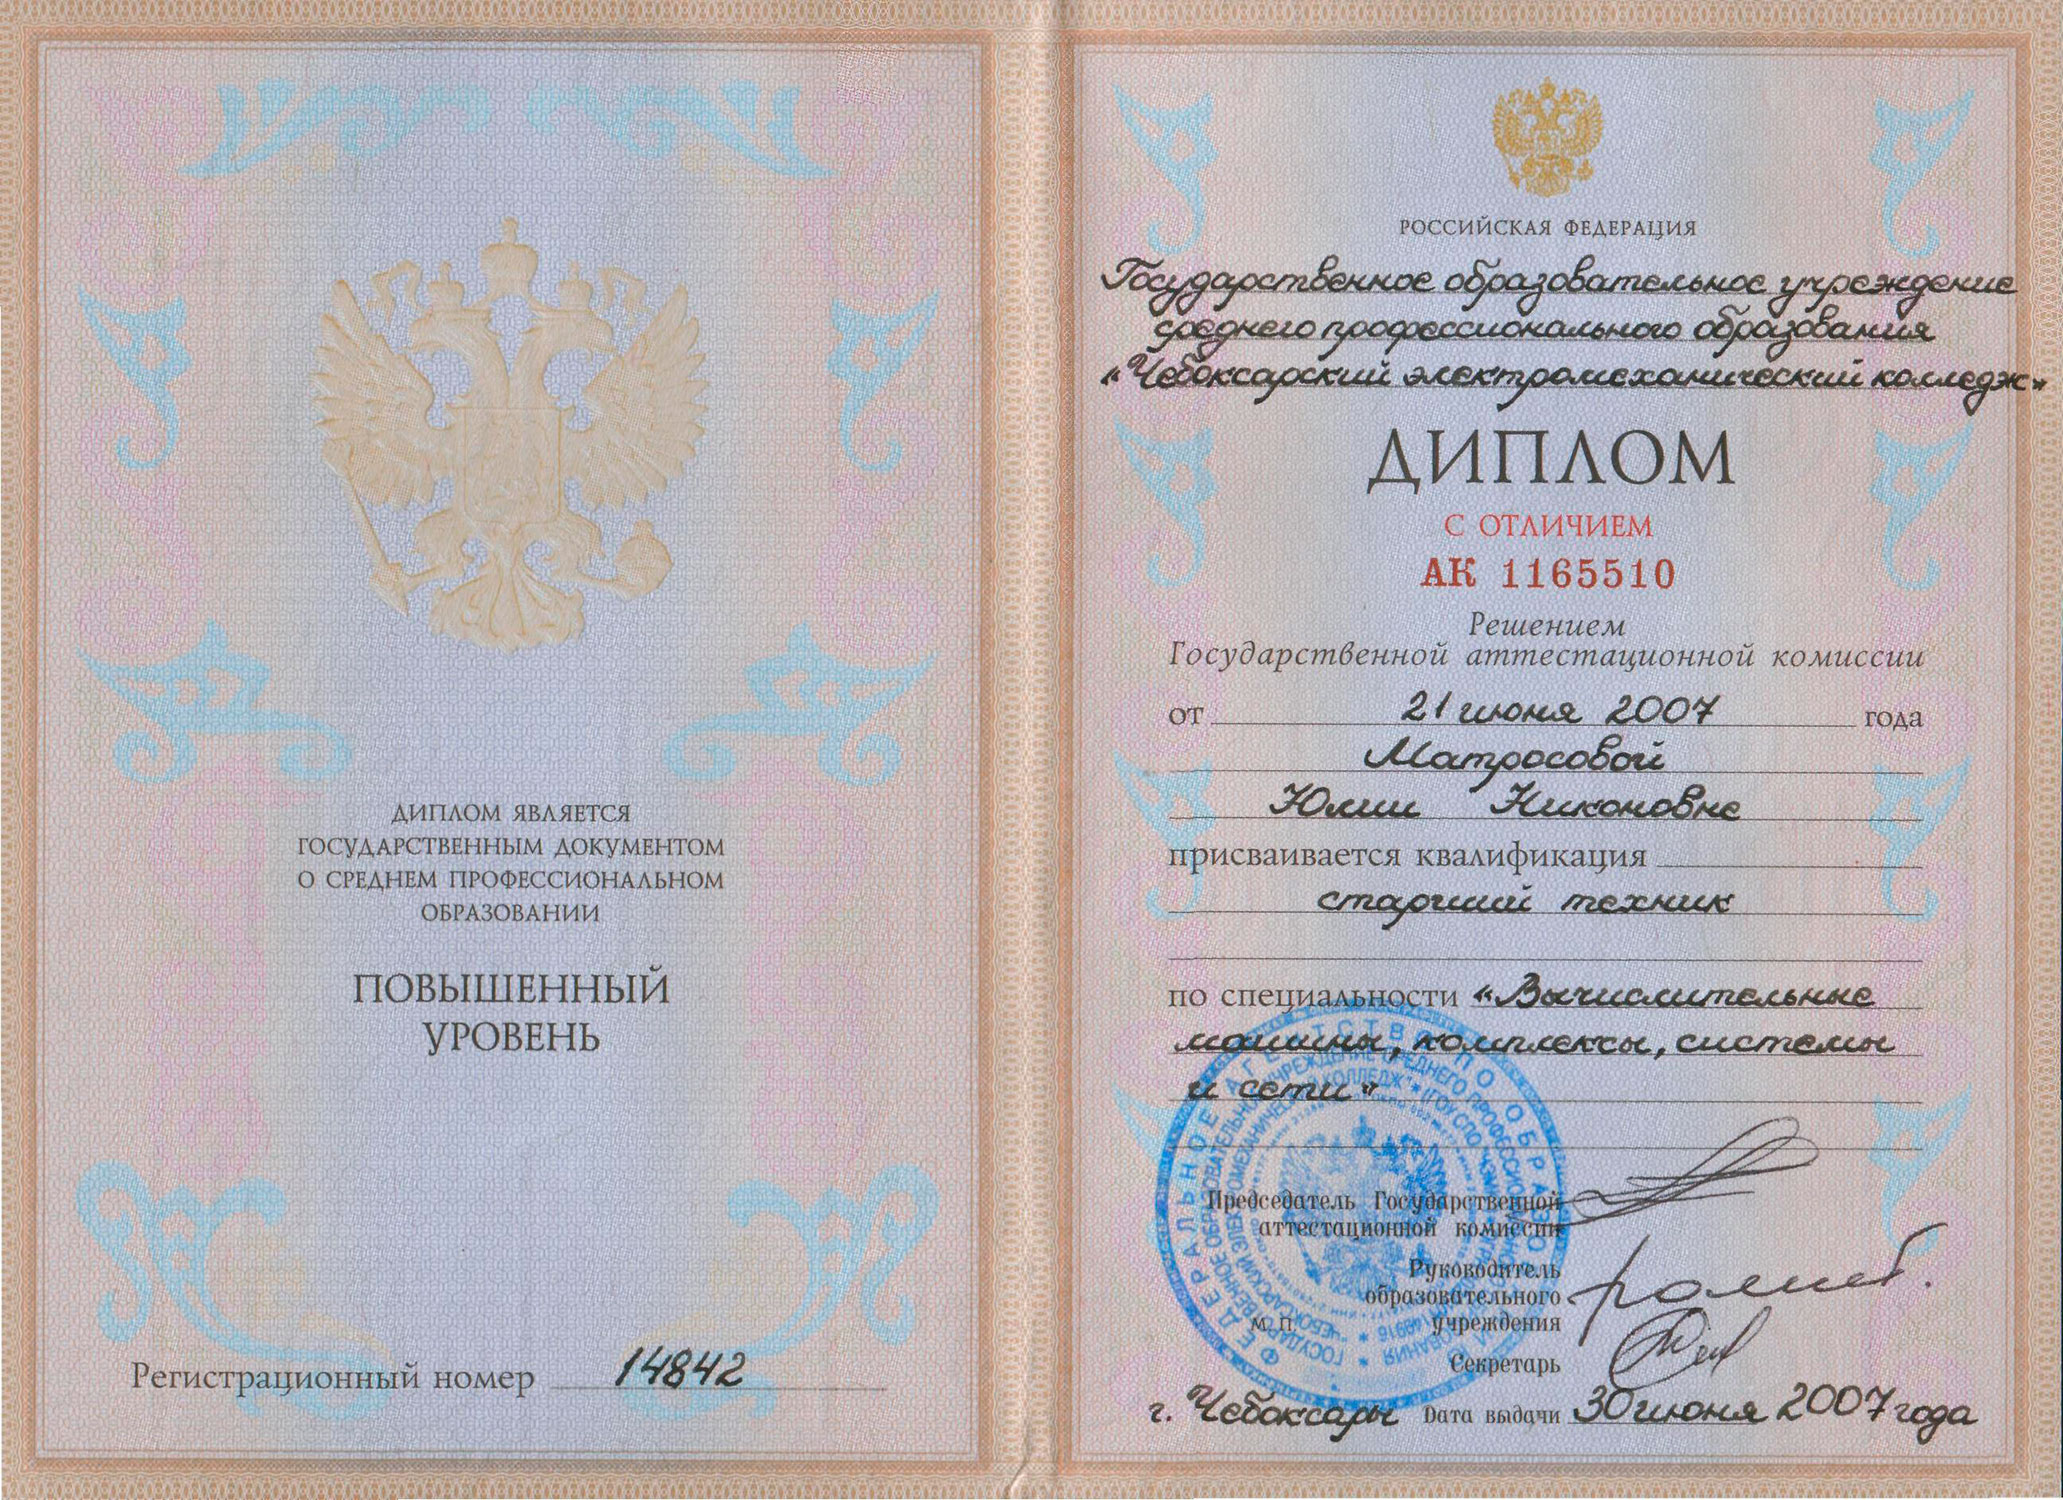 ДИПЛОМ ЯВЛЯЕТСЯ
ГОСУДАРСТВЕННЫМ ДОКУМЕНТОМ
О СРЕДНЕМ ПРОФЕССИОНАЛЬНОМ
ОБРАЗОВАНИИ
ПОВЫШЕННЫЙ
УРОВЕНЬ
Регистрационный номер 14842
РОССИЙСКАЯ ФЕДЕРАЦИЯ
Государственное образовательное учреждение
среднего профессионального образования
«Чебоксарский электромеханический колледж»
ДИПЛОМ
С ОТЛИЧИЕМ
АК 1165510
Решением
Государственной аттестационной комиссии
от 21 июня 2007 года
Матросовой
Юлии Никоновне
присваивается квалификация
старший техник
по специальности «Вычислительные
машины, комплексы, системы
и сети»
Председатель Государственной
аттестационной комиссии
Руководитель
образовательного
М. П. учреждения
Секретарь
г. Чебоксары Дата выдачи 30 июня 2007 года
ФЕДЕРАЛЬНОЕ АГЕНТСТВО ПО ОБРАЗОВАНИЮ